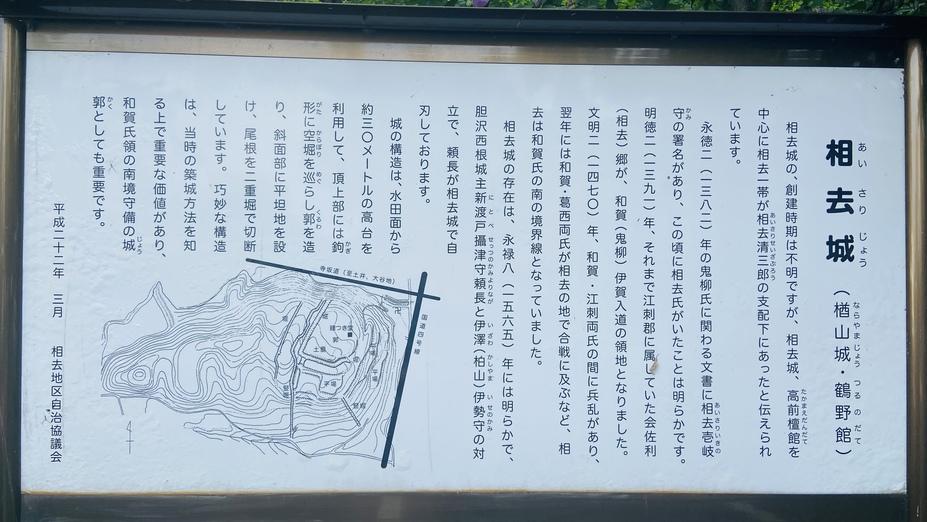 相去城（楢山城・鶴野館）
相去城の、創建時期は不明ですが、相去城、高前檀館を
中心に相去一帯が相去清三郎の支配下にあったと伝えられ
ています。
永徳二（一三八二）年の鬼柳氏に関わる文書に相去壱岐
守の署名があり、この頃に相去氏がいたことは明らかです。
明徳二（一三九一）年、それまで江刺郡に属していた会佐利
（相去）郷が、和賀（鬼柳）伊賀入道の領地となりました。
文明二（一四七〇）年、和賀・江刺両氏の間に兵乱があり、
翌年には和賀・葛西両氏が相去の地で合戦に及ぶなど、相
去は和賀氏の南の境界線となっていました。
相去城の存在は、永禄八（一五六五）年には明らかで、
胆沢西根城主新渡戸攝津守頼長と伊澤（柏山）伊勢守の対
立で、頼長が相去城で自
刃しております。
城の構造は、水田面から
約三〇メートルの高台を
利用して、頂上部には鉤
形に空堀を巡らし郭を造
り、斜面部に平坦地を設
け、尾根を二重堀で切断
しています。巧妙な構造
は、当時の築城方法を知
る上で重要な価値があり、
和賀氏領の南境守備の城
郭としても重要です。
平成二十二年　三月　　相去地区自治協議会
寺坂道（至土井、大谷地）
国道四号線
鐘つき堂
郭
土塁
平場
平場
堀
卍